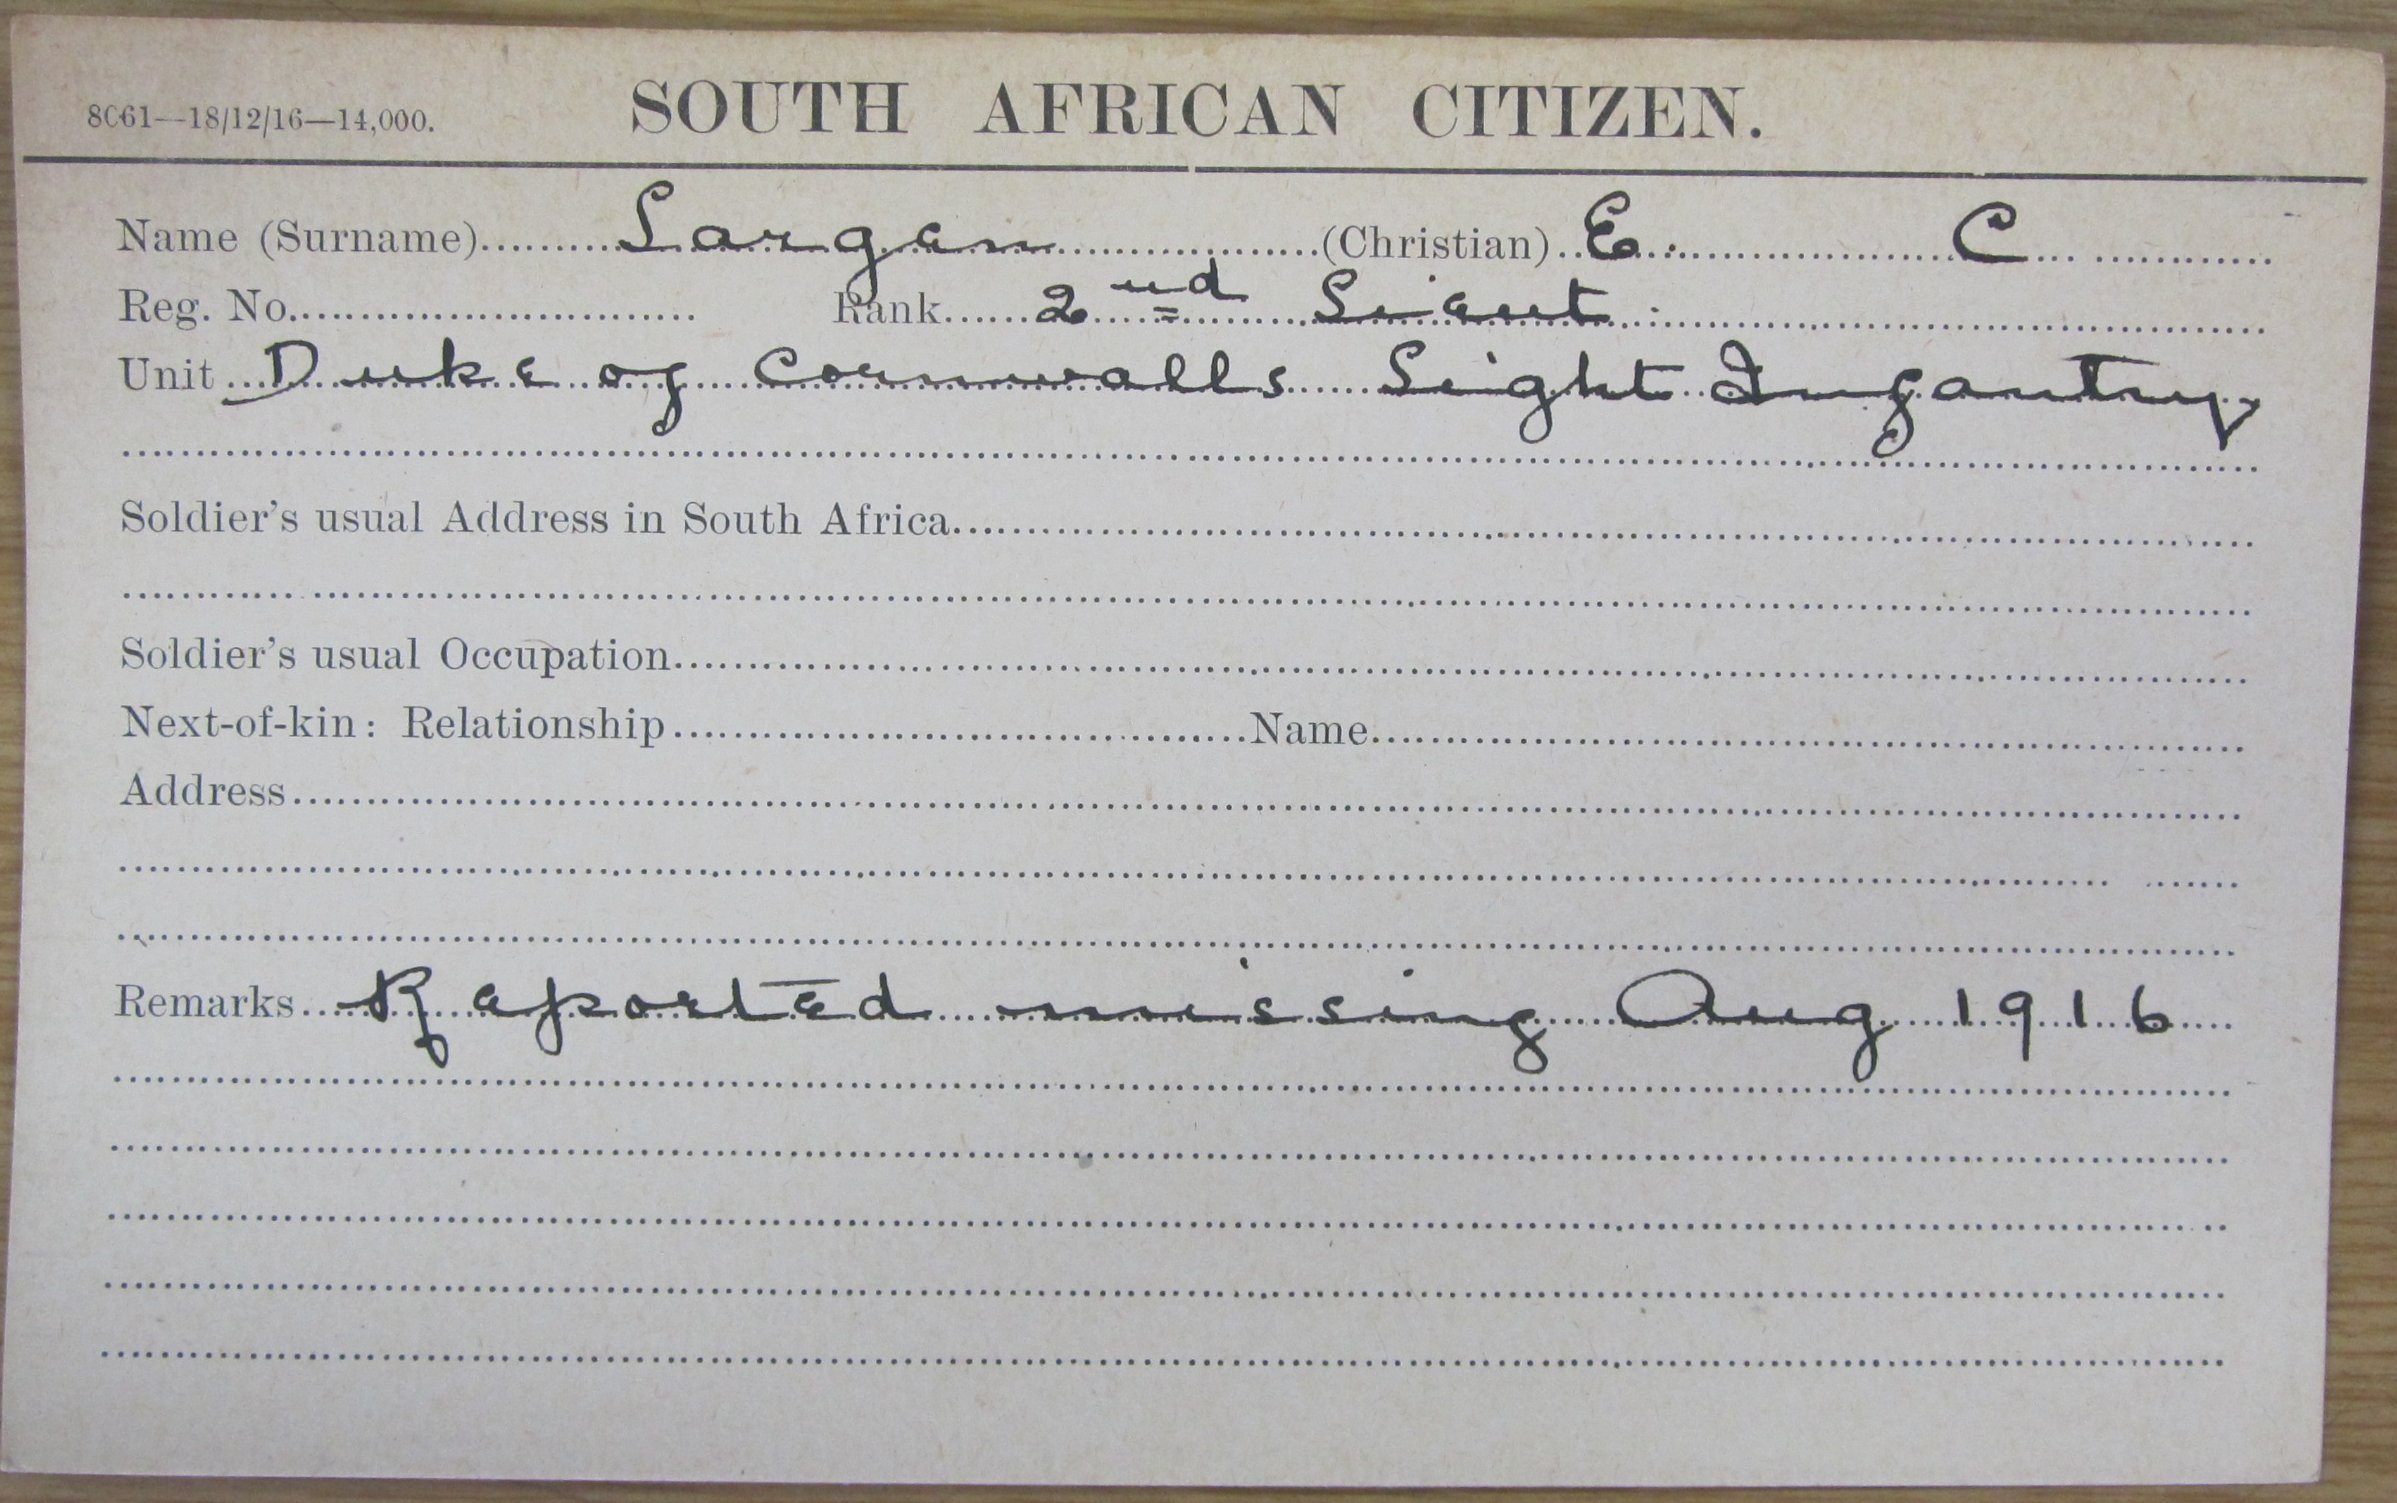 8C61—18/12/16—14,000. SOUTH AFRICAN CITIZEN.
Name (Surname) Largen (Christian) E. C
Reg. No. Rank 2nd Lieut.
Unit Duke of Cornwalls Light Infantry
Soldier's usual Address in South Africa
Soldier's usual Occupation
Next-of-kin: Relationship Name
Address
Remarks Reported missing Aug 1916